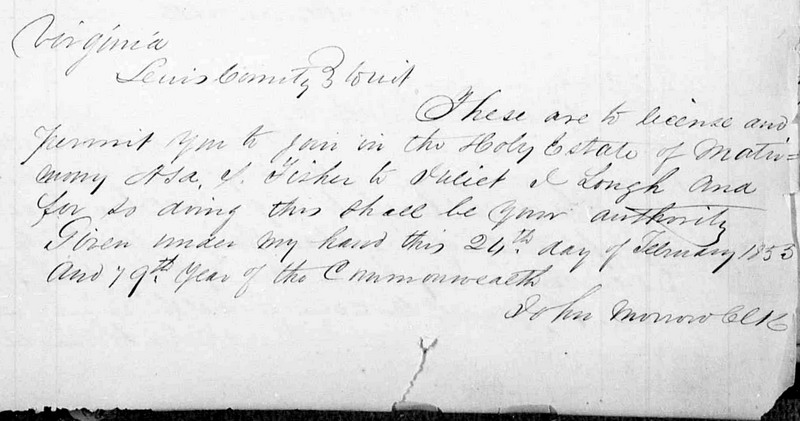 Virginia
Lewis County } towit
These are to license and
permit you to join in the Holy Estate of Matri=
mony Asa, S. Fisher to Juliet I Lough And
for so doing this shall be your authority
Given under my hand this 24th day of February 1853
And 79th Year of the Commonwealth
John Morrow Clk